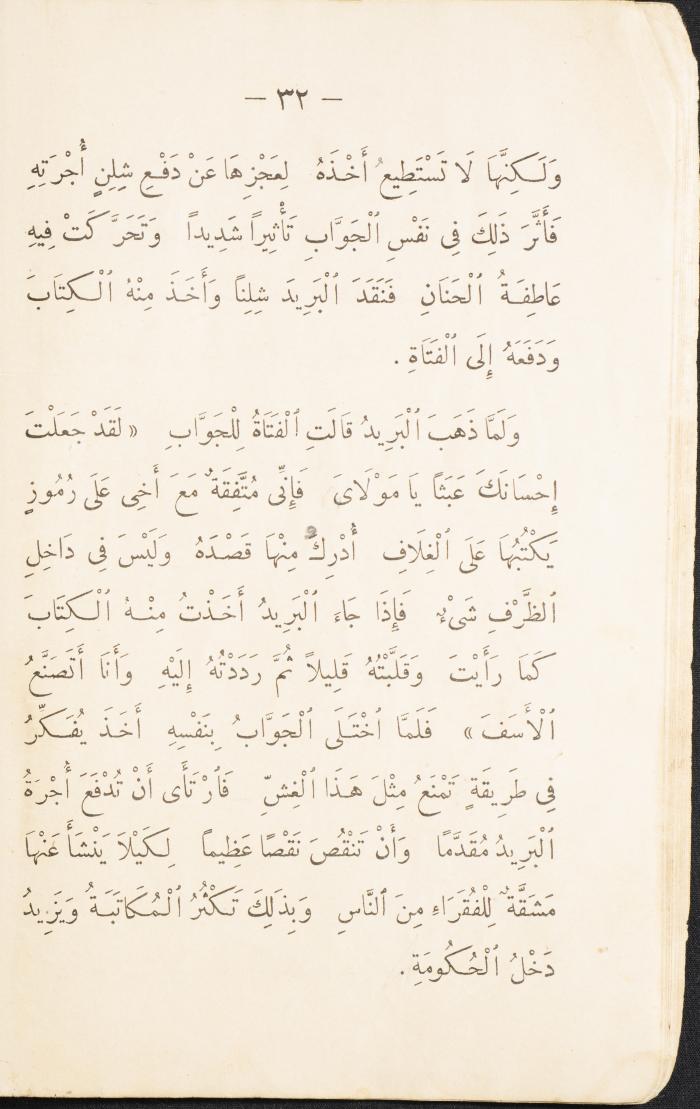 — ٣٢ —
وَلَـكِنَّهَا لَا تَسْتَطِيعُ أَخْذَهُ لِعَجْزِهَا عَنْ دَفْعِ شِلِنٍ أُجْرَتِهِ
فَأَثَّرَ ذَلِكَ فِى نَفْسِ ٱلْجَوَّابِ تَأْثِيراً شَدِيداً وَتَحَرَّكَتْ فِيهِ
عَاطِفَةُ ٱلْحَنَانِ فَنَقَدَ ٱلْبَرِيدَ شِلِناً وَأَخَذَ مِنْهُ ٱلْـكِتَابَ
وَدَفَعَهُ إِلَى ٱلْفَتَاةِ .
وَلَمَّا ذَهَبَ ٱلْبَرِيدُ قَالَتِ ٱلْفَتَاةُ لِلْجَوَّابِ « لَقَدْ جَعَلْتَ
إِحْسَانَكَ عَبَثاً يَا مَوْلَاىَ فَإِنِّى مُتَّفِقَةٌ مَعَ أَخِى عَلَى رُمُوزٍ
يَكْتُبُهَا عَلَى ٱلْغِلَافِ أُدْرِكُ مِنْهَا قَصْدَهُ وَلَيْسَ فِى دَاخِلِ
ٱلظَّرْفِ شَىْءٌ فَإِذَا جَاءَ ٱلْبَرِيدُ أَخَذْتُ مِنْـهُ ٱلْـكِتَابَ
كَمَا رَأَيْتَ وَقَلَّبْتُهُ قَلِيلاً ثُمَّ رَدَدْتُهُ إِلَيْهِ وَأَنَا أَتَصَنَّعُ
ٱلْأَسَفَ » فَلَمَّا ٱخْتَـلَى ٱلْجَوَّابُ بِنَفْسِهِ أَخَذَ يُفَـكِّرُ
فِى طَرِيقَةٍ تَمْنَعُ مِثْلَ هَـذَا ٱلْغِشِّ فَٱرْتَأَى أَنْ تُدْفَعَ أُجْرَةُ
ٱلْبَرِيدُ مُقَدَّمًا وَأَنْ تَنْقُصَ نَقْصًا عَظِيماً لِـكَيْلَا يَنْشَأَ عَنْهَا
مَشَقَّةٌ لِلْفُقَرَاءِ مِنَ ٱلنَّاسِ وَبِذَلِكَ تَـكْثُرُ ٱلْمُـكَاتَبَـةُ وَيَزِيدُ
دَخْلُ ٱلْحُـكُومَةِ .